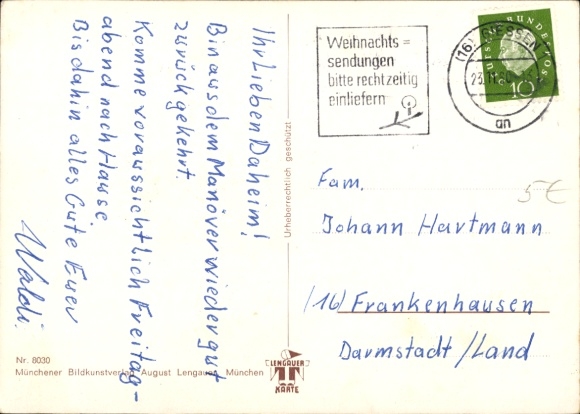 Ihr Lieben Daheim!
Bin aus dem Manöver wieder gut
zurückgekehrt.
Komme voraussichtlich Freitag-
abend nach Hause
Bis dahin alles Gute Euer
Waldi.
Nr. 8030
Münchener Bildkunstverlag August Lengauer, München
Urheberrechtlich geschützt
LENGAUER
KARTE
Weihnachts=
sendungen
bitte rechtzeitig
einliefern
(16) GIESSEN
23.11.60
an
DEUTSCHE BUNDESPOST
10
5€
Fam.
Johann Hartmann
(16) Frankenhausen
Darmstadt/Land